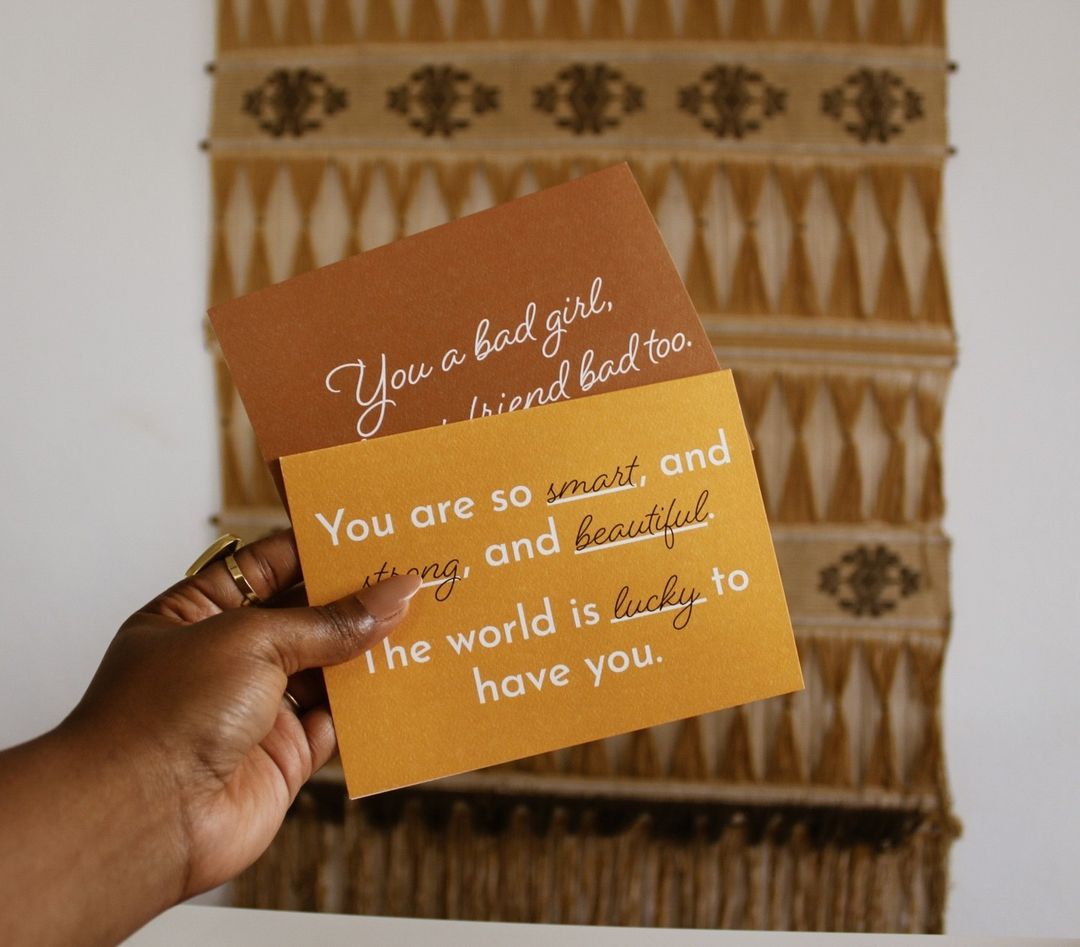 You a bad girl,
friend bad too.
You are so smart, and
strong, and beautiful.
The world is lucky to
have you.